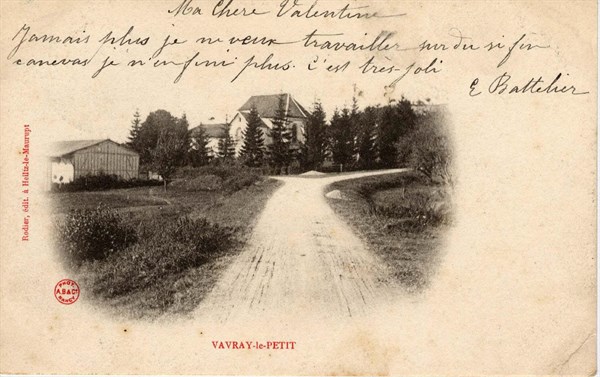 Ma Chère Valentine
Jamais plus je ne veux travailler sur du si fin
canevas je n'en fini plus. C'est très-joli
E Battelier
Rodier, édit. à Heiltz-le-Maurupt
PHOT
A.B & Cº
NANCY
VAVRAY-le-PETIT